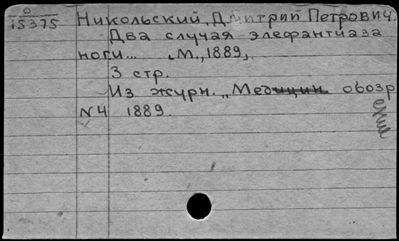 0
15375
Никольский, Дмитрий Петрович.
Два случая элефантиаза
ноги... М., 1889.
3 стр.
Из журн. „Медицин. обозр
N4 1889.